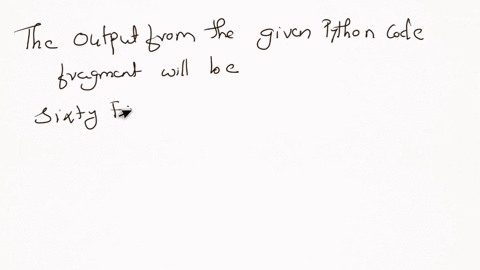 The output from the given Python code
fragment will be
sixty Fi